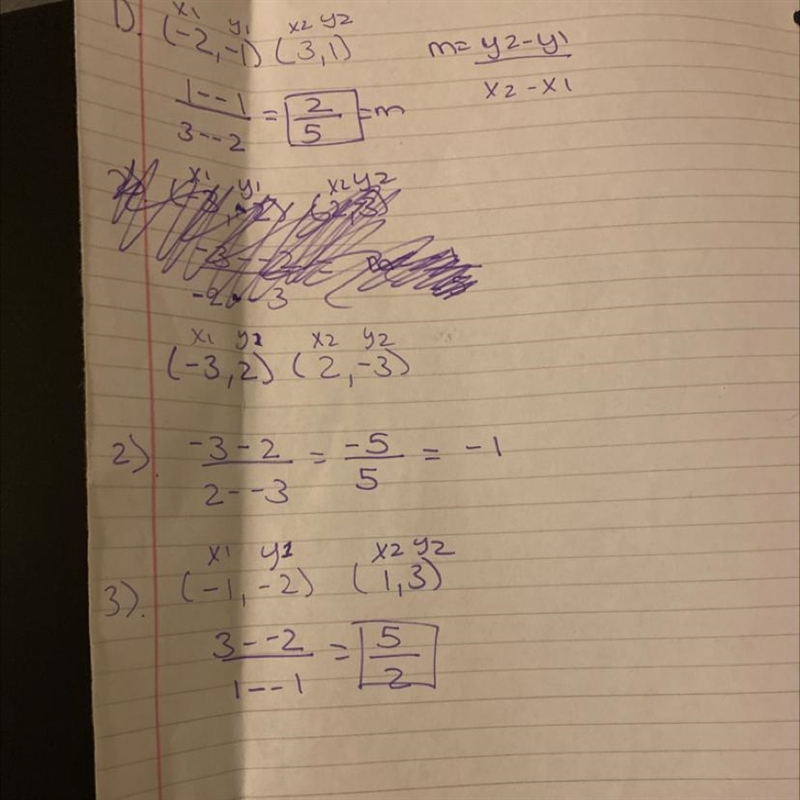 1). x1 y1 x2 y2
(-2,-1) (3,1) m= y2-y1
x2-x1
1--1 = 2 =m
3--2 5
x1 y1 x2 y2
x1 y2 x2 y2
(-3,2) (2,-3)
2). -3-2 = -5 = -1
2--3 5
x1 y1 x2 y2
3). (-1,-2) (1,3)
3--2 = 5
1--1 2